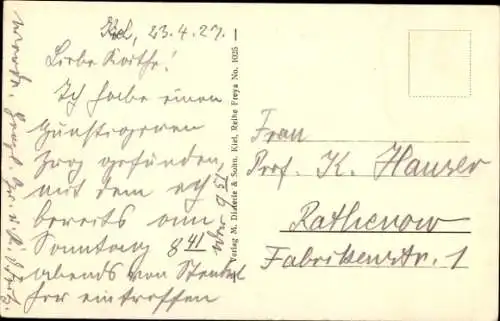 Kiel, 23.4.27.
Liebe Käthe!
Ich habe einen
günstigeren
Zug gefunden,
mit dem ich
bereits am
Sonntag 8 41 oder 9 51
abends von Stendal
her eintreffen
werde.
Verlag M. Dieterle & Sohn, Kiel, Reihe Freya No. 1025
Frau
Prof. K. Hauser
Rathenow
Fabrikenstr. 1